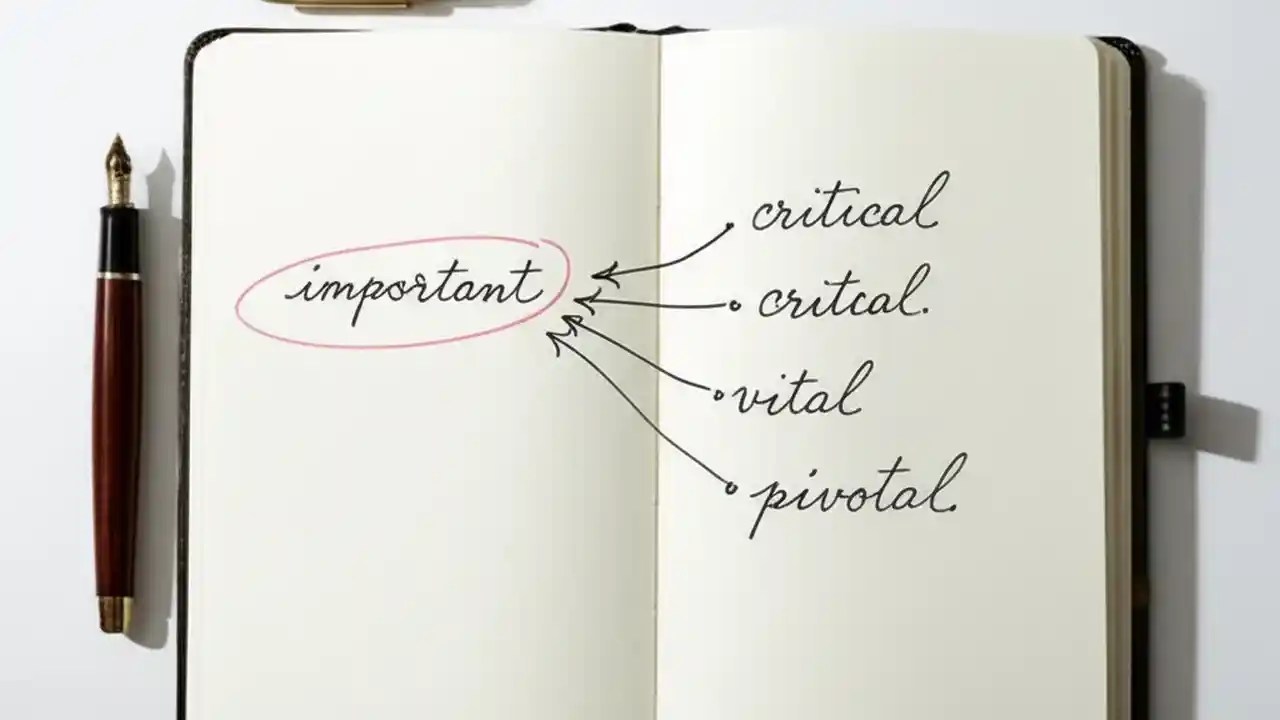 important
critical
critcal.
vital
pivotal.